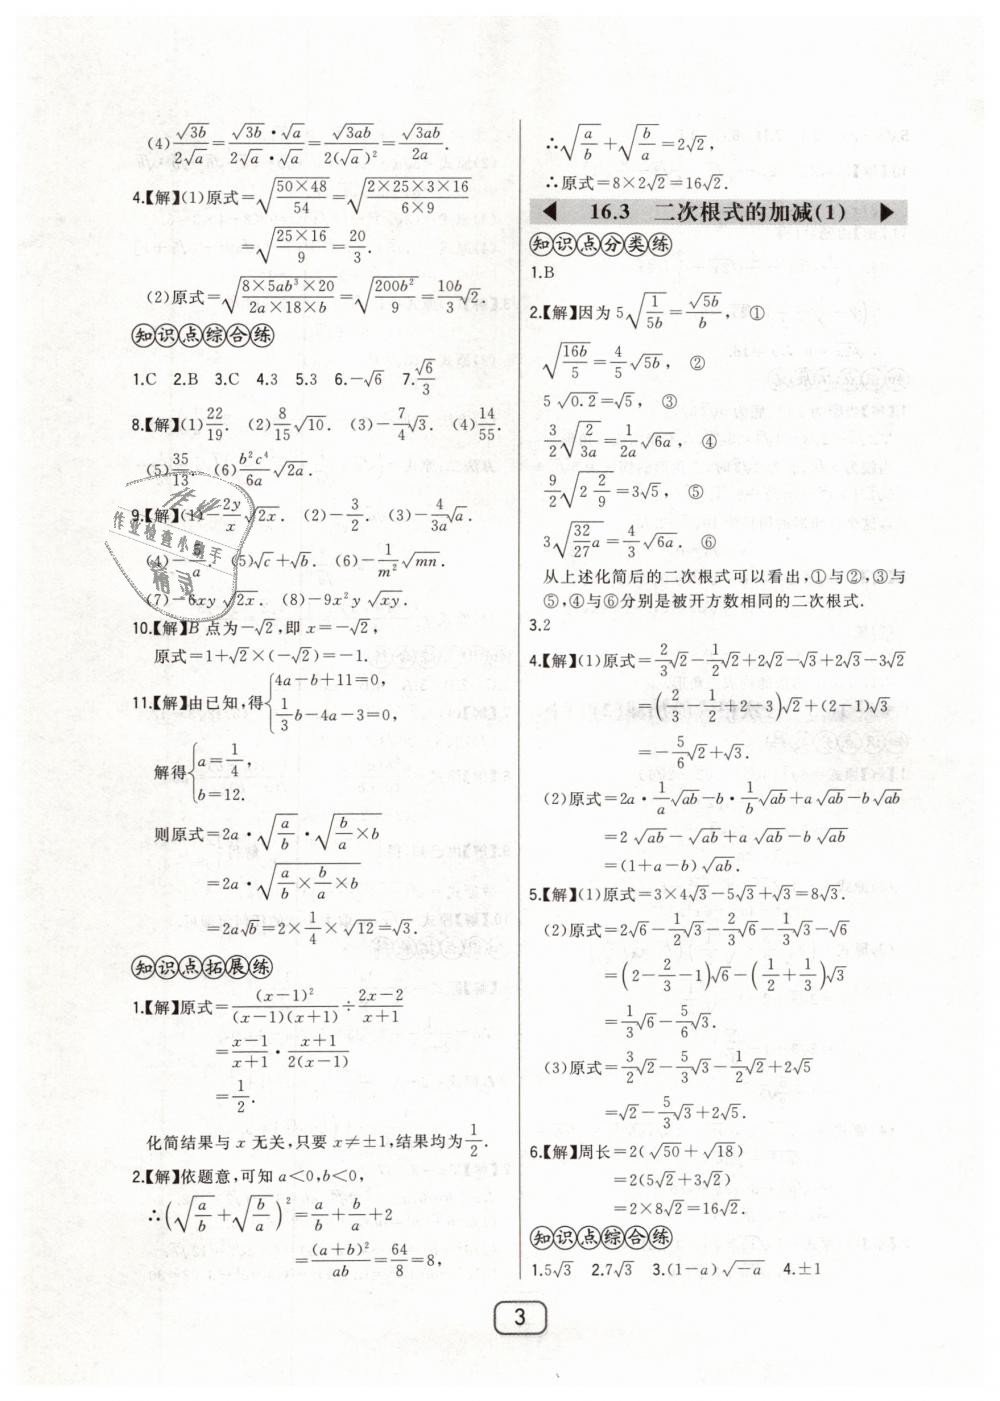 (4) √(3b)/(2√a)=(√(3b)·√a)/(2√a·√a)=√(3ab)/(2(√a)²)=√(3ab)/(2a).
4.【解】(1)原式=√((50×48)/54)=√((2×25×3×16)/(6×9))
=√((25×16)/9)=20/3.
(2)原式=√((8×5ab³×20)/(2a×18×b))=√(200b²/9)=(10b/3)√2.
知识点综合练
1.C 2.B 3.C 4.3 5.3 6.-√6 7.√6/3
8.【解】(1)22/19. (2)(8/15)√10. (3)-(7/4)√3. (4)14/55.
(5)35/13. (6)(b²c⁴/6a)√(2a).
9.【解】(1)-(2y/x)√(2x). (2)-3/2. (3)-(4/3a)√a.
(4)-5/a. (5)√c+√b. (6)-(1/m²)√(mn).
(7)-6xy√(2x). (8)-9x²y√(xy).
10.【解】B点为-√2,即x=-√2,
原式=1+√2×(-√2)=-1.
11.【解】由已知,得{4a-b+11=0, (1/3)b-4a-3=0,
解得{a=1/4, b=12.
则原式=2a·√(a/b)·√((b/a)×b)
=2a·√((a/b)×(b/a)×b)
=2a√b=2×(1/4)×√12=√3.
知识点拓展练
1.【解】原式=(x-1)²/((x-1)(x+1))÷(2x-2)/(x+1)
=(x-1)/(x+1)·(x+1)/(2(x-1))
=1/2.
化简结果与x无关,只要x≠±1,结果均为1/2.
2.【解】依题意,可知a<0,b<0,
∴(√(a/b)+√(b/a))²=a/b+b/a+2
=(a+b)²/ab=64/8=8,
∴√(a/b)+√(b/a)=2√2,
∴原式=8×2√2=16√2.
16.3 二次根式的加减(1)
知识点分类练
1.B
2.【解】因为5√(1/5b)=√(5b)/b, ①
√(16b/5)=(4/5)√(5b), ②
5√0.2=√5, ③
(3/2)√(2/3a)=(1/2a)√(6a), ④
(9/2)√(2 2/9)=3√5, ⑤
3√((32/27)a)=(4/3)√(6a). ⑥
从上述化简后的二次根式可以看出,①与②,③与
⑤,④与⑥分别是被开方数相同的二次根式.
3.2
4.【解】(1)原式=(2/3)√2-(1/2)√2+2√2-√3+2√3-3√2
=(2/3-1/2+2-3)√2+(2-1)√3
=-(5/6)√2+√3.
(2)原式=2a·(1/a)√(ab)-b·(1/b)√(ab)+a√(ab)-b√(ab)
=2√(ab)-√(ab)+a√(ab)-b√(ab)
=(1+a-b)√(ab).
5.【解】(1)原式=3×4√3-5√3+√3=8√3.
(2)原式=2√6-(1/2)√3-(2/3)√6-(1/3)√3-√6
=(2-2/3-1)√6-(1/2+1/3)√3
=(1/3)√6-(5/6)√3.
(3)原式=(3/2)√2-(5/3)√3-(1/2)√2+2√5
=√2-(5/3)√3+2√5.
6.【解】周长=2(√50+√18)
=2(5√2+3√2)
=2×8√2=16√2.
知识点综合练
1.5√3 2.7√3 3.(1-a)√(-a) 4.±1
3
作业
作业检查小助手
精灵